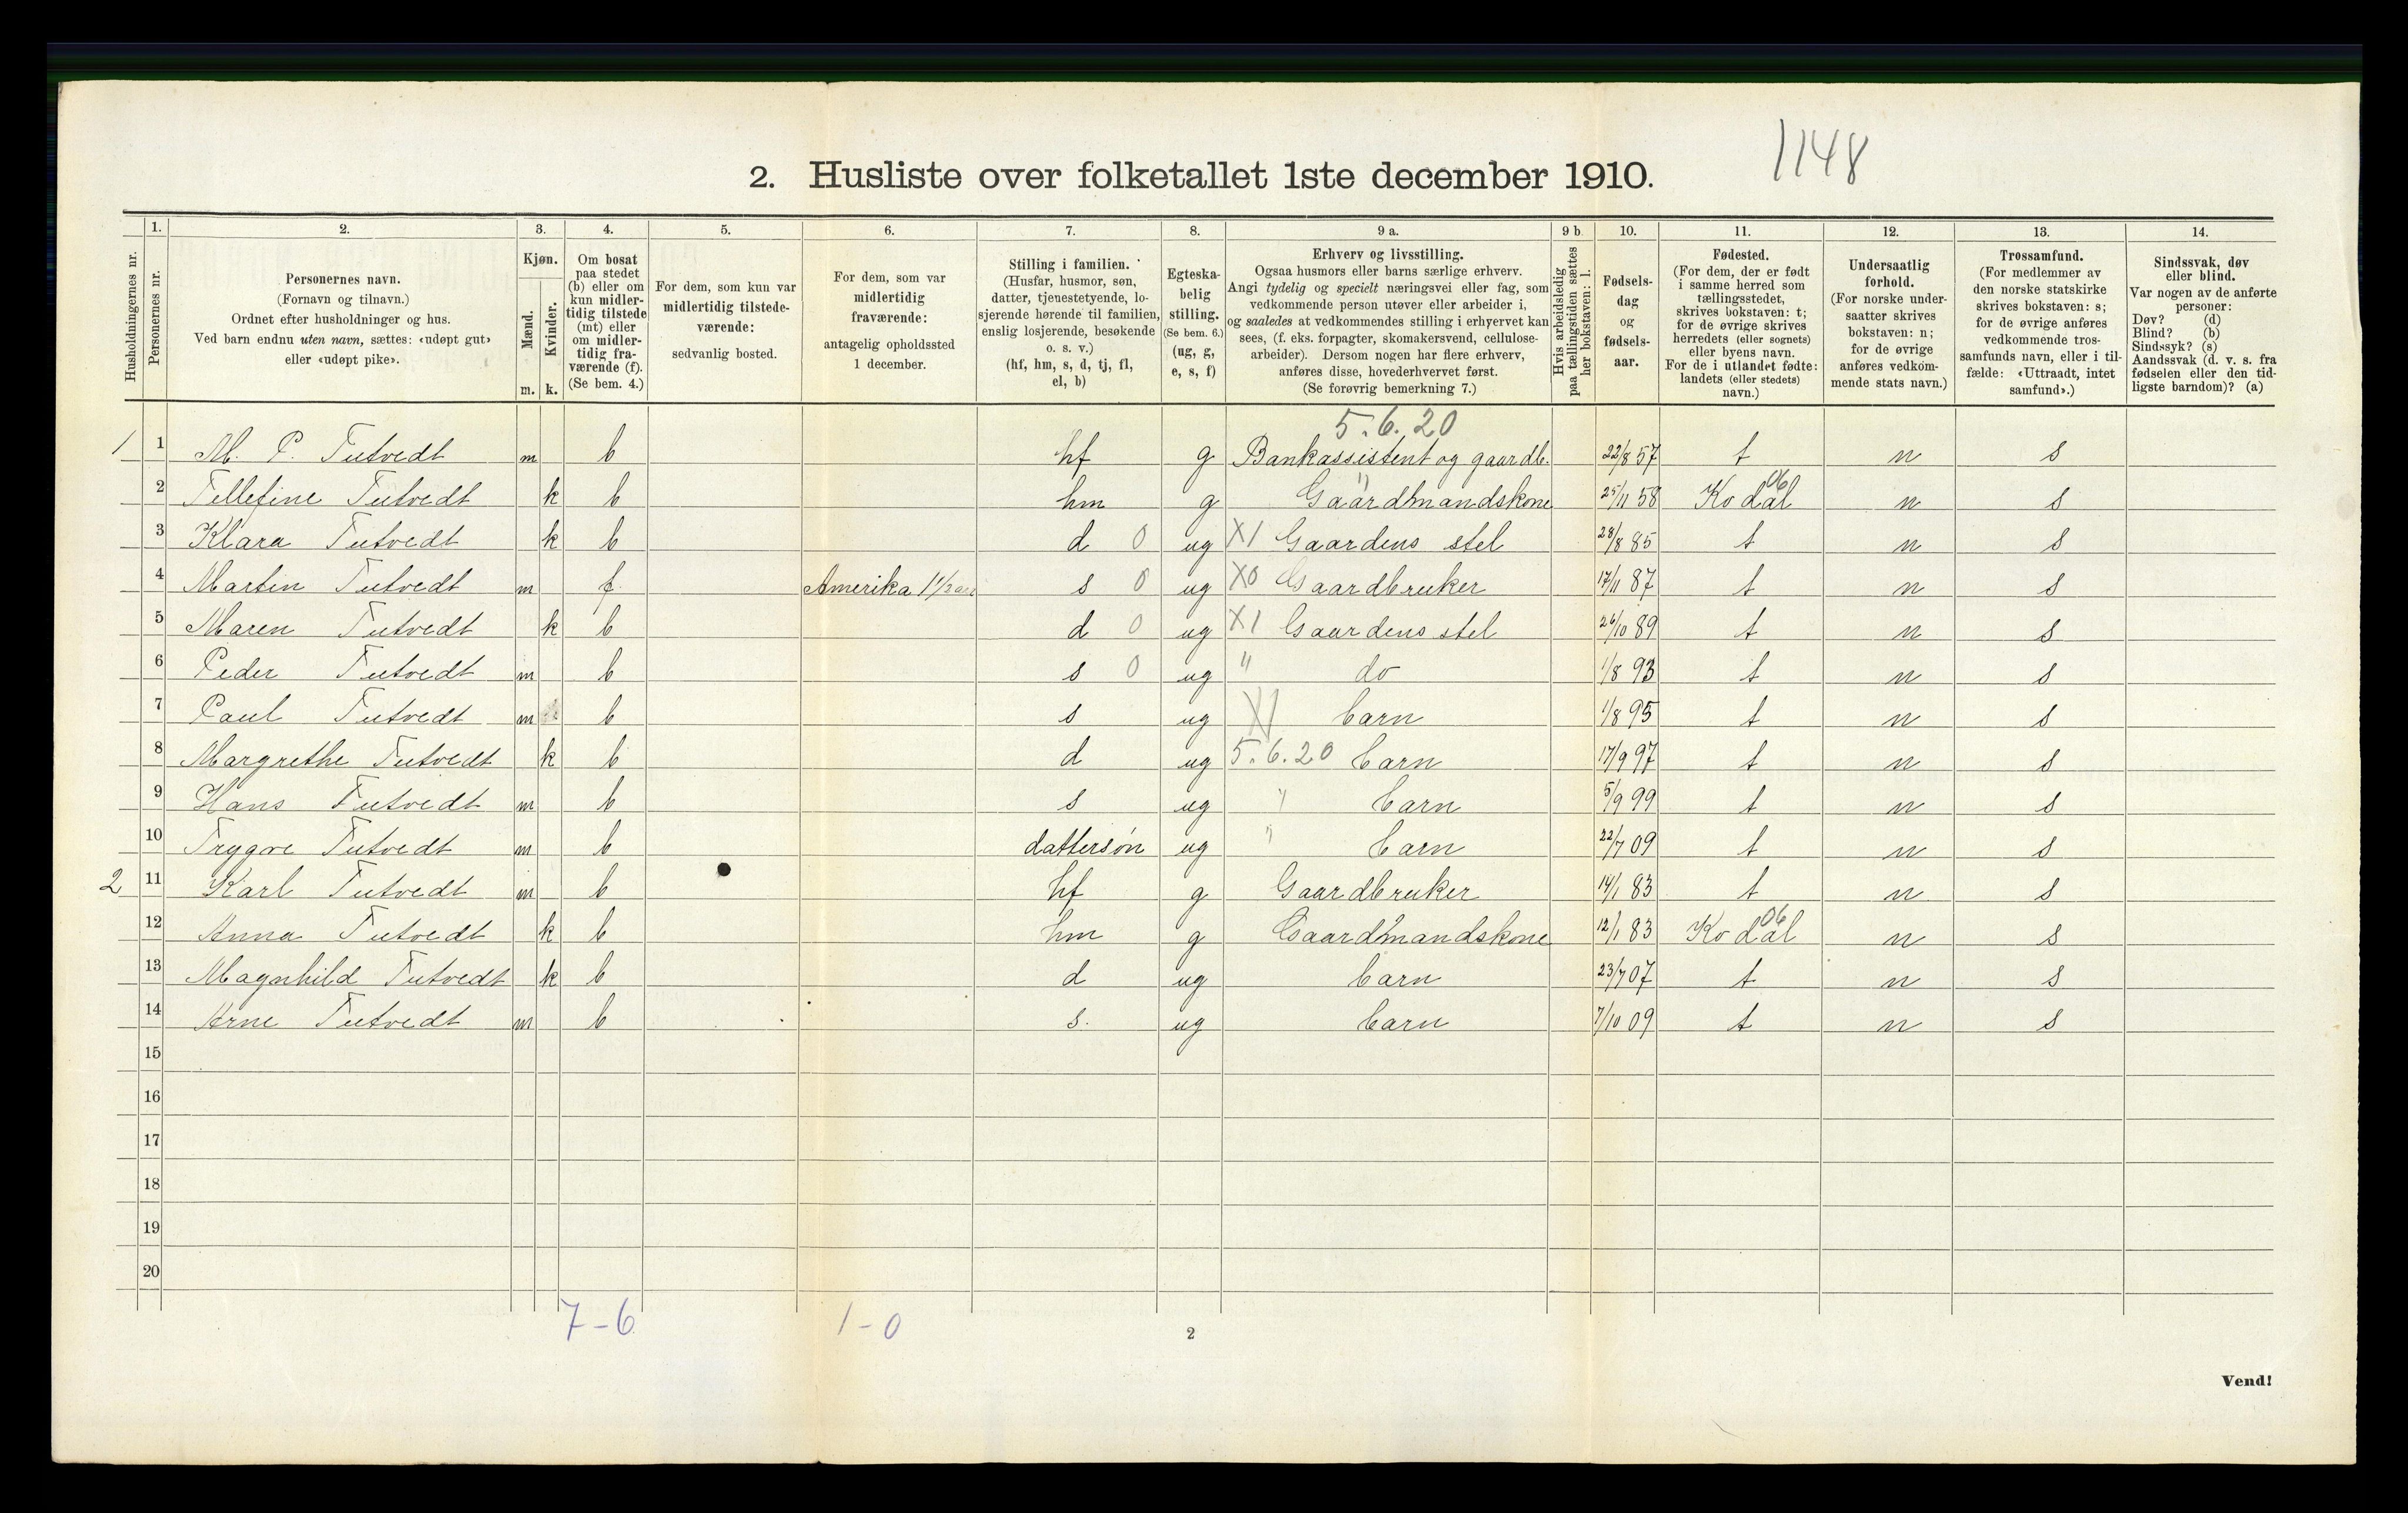 1148
2. Husliste over folketallet 1ste december 1910.
Husholdningernes nr.
1. Personernes nr.
2. Personernes navn.
(Fornavn og tilnavn.)
Ordnet efter husholdninger og hus.
Ved barn endnu uten navn, sættes: «udøpt gut»
eller «udøpt pike».
3. Kjøn.
Mænd. Kvinder.
m. k.
4. Om bosat
paa stedet
(b) eller om
kun midler-
tidig tilstede
(mt) eller
om midler-
tidig fra-
værende (f).
(Se bem. 4.)
5. For dem, som kun var
midlertidig tilstede-
værende:
sedvanlig bosted.
6. For dem, som var
midlertidig
fraværende:
antagelig opholdssted
1 december.
7. Stilling i familien.
(Husfar, husmor, søn,
datter, tjenestetyende, lo-
sjerende hørende til familien,
enslig losjerende, besøkende
o. s. v.)
(hf, hm, s, d, tj, fl,
el, b)
8. Egteska-
belig
stilling.
(Se bem. 6.)
(ug, g,
e, s, f)
9 a. Erhverv og livsstilling.
Ogsaa husmors eller barns særlige erhverv.
Angi tydelig og specielt næringsvei eller fag, som
vedkommende person utøver eller arbeider i,
og saaledes at vedkommendes stilling i erhvervet kan
sees, (f. eks. forpagter, skomakersvend, cellulose-
arbeider). Dersom nogen har flere erhverv,
anføres disse, hovederhvervet først.
(Se forøvrig bemerkning 7.)
9 b. Hvis arbeidsledig
paa tællingstiden sættes
her bokstaven: l.
10. Fødsels-
dag
og
fødsels-
aar.
11. Fødested.
(For dem, der er født
i samme herred som
tællingsstedet,
skrives bokstaven: t;
for de øvrige skrives
herredets (eller sognets)
eller byens navn.
For de i utlandet fødte:
landets (eller stedets)
navn.)
12. Undersaatlig
forhold.
(For norske under-
saatter skrives
bokstaven: n;
for de øvrige
anføres vedkom-
mende stats navn.)
13. Trossamfund.
(For medlemmer av
den norske statskirke
skrives bokstaven: s;
for de øvrige anføres
vedkommende tros-
samfunds navn, eller i til-
fælde: «Uttraadt, intet
samfund».)
14. Sindssvak, døv
eller blind.
Var nogen av de anførte
personer:
Døv? (d)
Blind? (b)
Sindssyk? (s)
Aandssvak (d. v. s. fra
fødselen eller den tid-
ligste barndom)? (a)
5.6.20
1 1 M. P. Tutvedt m b hf g Bankassistent og gaardb. 22/8 57 t n s
2 Tellefine Tutvedt k b hm g " Gaardmandskone 25/11 58 Kodal 06 n s
3 Klara Tutvedt k b d 0 ug X1 Gaardens stel 28/8 85 t n s
4 Martin Tutvedt m f Amerika 1 1/2 aar s 0 ug X0 Gaardbruker 17/11 87 t n s
5 Maren Tutvedt k b d 0 ug X1 Gaardens stel 26/10 89 t n s
6 Peder Tutvedt m b s 0 ug " do 1/8 93 t n s
7 Paul Tutvedt m b s ug X1 barn 1/8 95 t n s
8 Margrethe Tutvedt k b d ug 5.6.20 barn 17/9 97 t n s
9 Hans Tutvedt m b s ug " barn 5/9 99 t n s
10 Trygve Tutvedt m b dattersøn ug " barn 22/7 09 t n s
2 11 Karl Tutvedt m b hf g Gaardbruker 14/1 83 t n s
12 Anna Tutvedt k b hm g Gaardmandskone 12/1 83 Kodal 06 n s
13 Magnhild Tutvedt k b d ug barn 23/7 07 t n s
14 Arne Tutvedt m b s. ug barn 7/10 09 t n s
15
16
17
18
19
20
7-6 1-0
2
Vend!